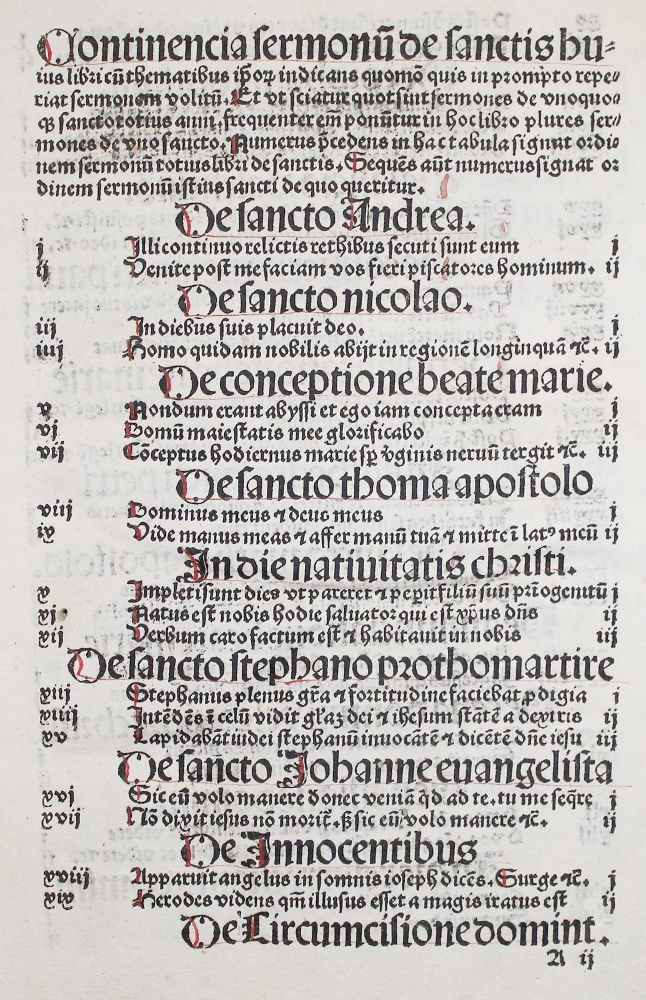 Continencia sermonū de sanctis hu⸗
ius libri cū thematibus ip̄oꝝ indicans quomō quis in prompto repe⸗
riat sermonem volitū. Et vt sciatur quot sint sermones de vnoquo⸗
qꝫ sancto totius anni, frequenter em̄ ponūtur in hoc libro plures ser⸗
mones de vno sancto. Numerus p̄cedens in hac tabula signat ordi⸗
nem sermonū totius libri de sanctis. Sequēs aūt numerus signat or
dinem sermonū istius sancti de quo queritur.
De sancto Andrea.
j Illi continuo relictis rethibus secuti sunt eum j
ij Venite post me faciam vos fieri piscatores hominum. ij
De sancto nicolao.
iij In diebus suis placuit deo. j
iiij Homo quidam nobilis abijt in regionē longinquā ⁊c̄. ij
De conceptione beate marie.
v Nondum erant abyssi et ego iam concepta eram j
vj Domū maiestatis mee glorificabo ij
vij Cōceptus hodiernus marie sꝑ v̄ginis neruū tergit ⁊c̄. iij
De sancto thoma apostolo
viij Dominus meus ⁊ deus meus j
ix Vide manus meas ⁊ affer manū tuā ⁊ mitte ī latꝰ meū ij
In die natiuitatis christi.
x Impleti sunt dies vt pareret ⁊ peꝑit filiū suū prīogenitū j
xj Natus est nobis hodie saluator qui est xp̄us dn̄s ij
xij Verbum caro factum est ⁊ habitauit in nobis iij
De sancto stephano prothomartire
xiij Stephanus plenus gr̄a ⁊ fortitudine faciebat ꝓdigia j
xiiij Intēdēs ī celū vidit gl̄aꝫ dei ⁊ ihesum stātē a dextris ij
xv Lapidabāt iudei stephanū inuocātē ⁊ dicētē dn̄e iesu iij
De sancto Johanne euangelista
xvj Sic eū volo manere donec veniā qd̄ ad te. tu me seq̄re j
xvij Nō dixit iesus nō morit̄. ꝫ sic eū volo manere ⁊c̄. ij
De Innocentibus
xviij Apparuit angelus in somnis ioseph dicēs. Surge ⁊c̄. j
xix Herodes videns qm̄ illusus esset a magis iratus est ij
De Circumcisione domini.
A ij